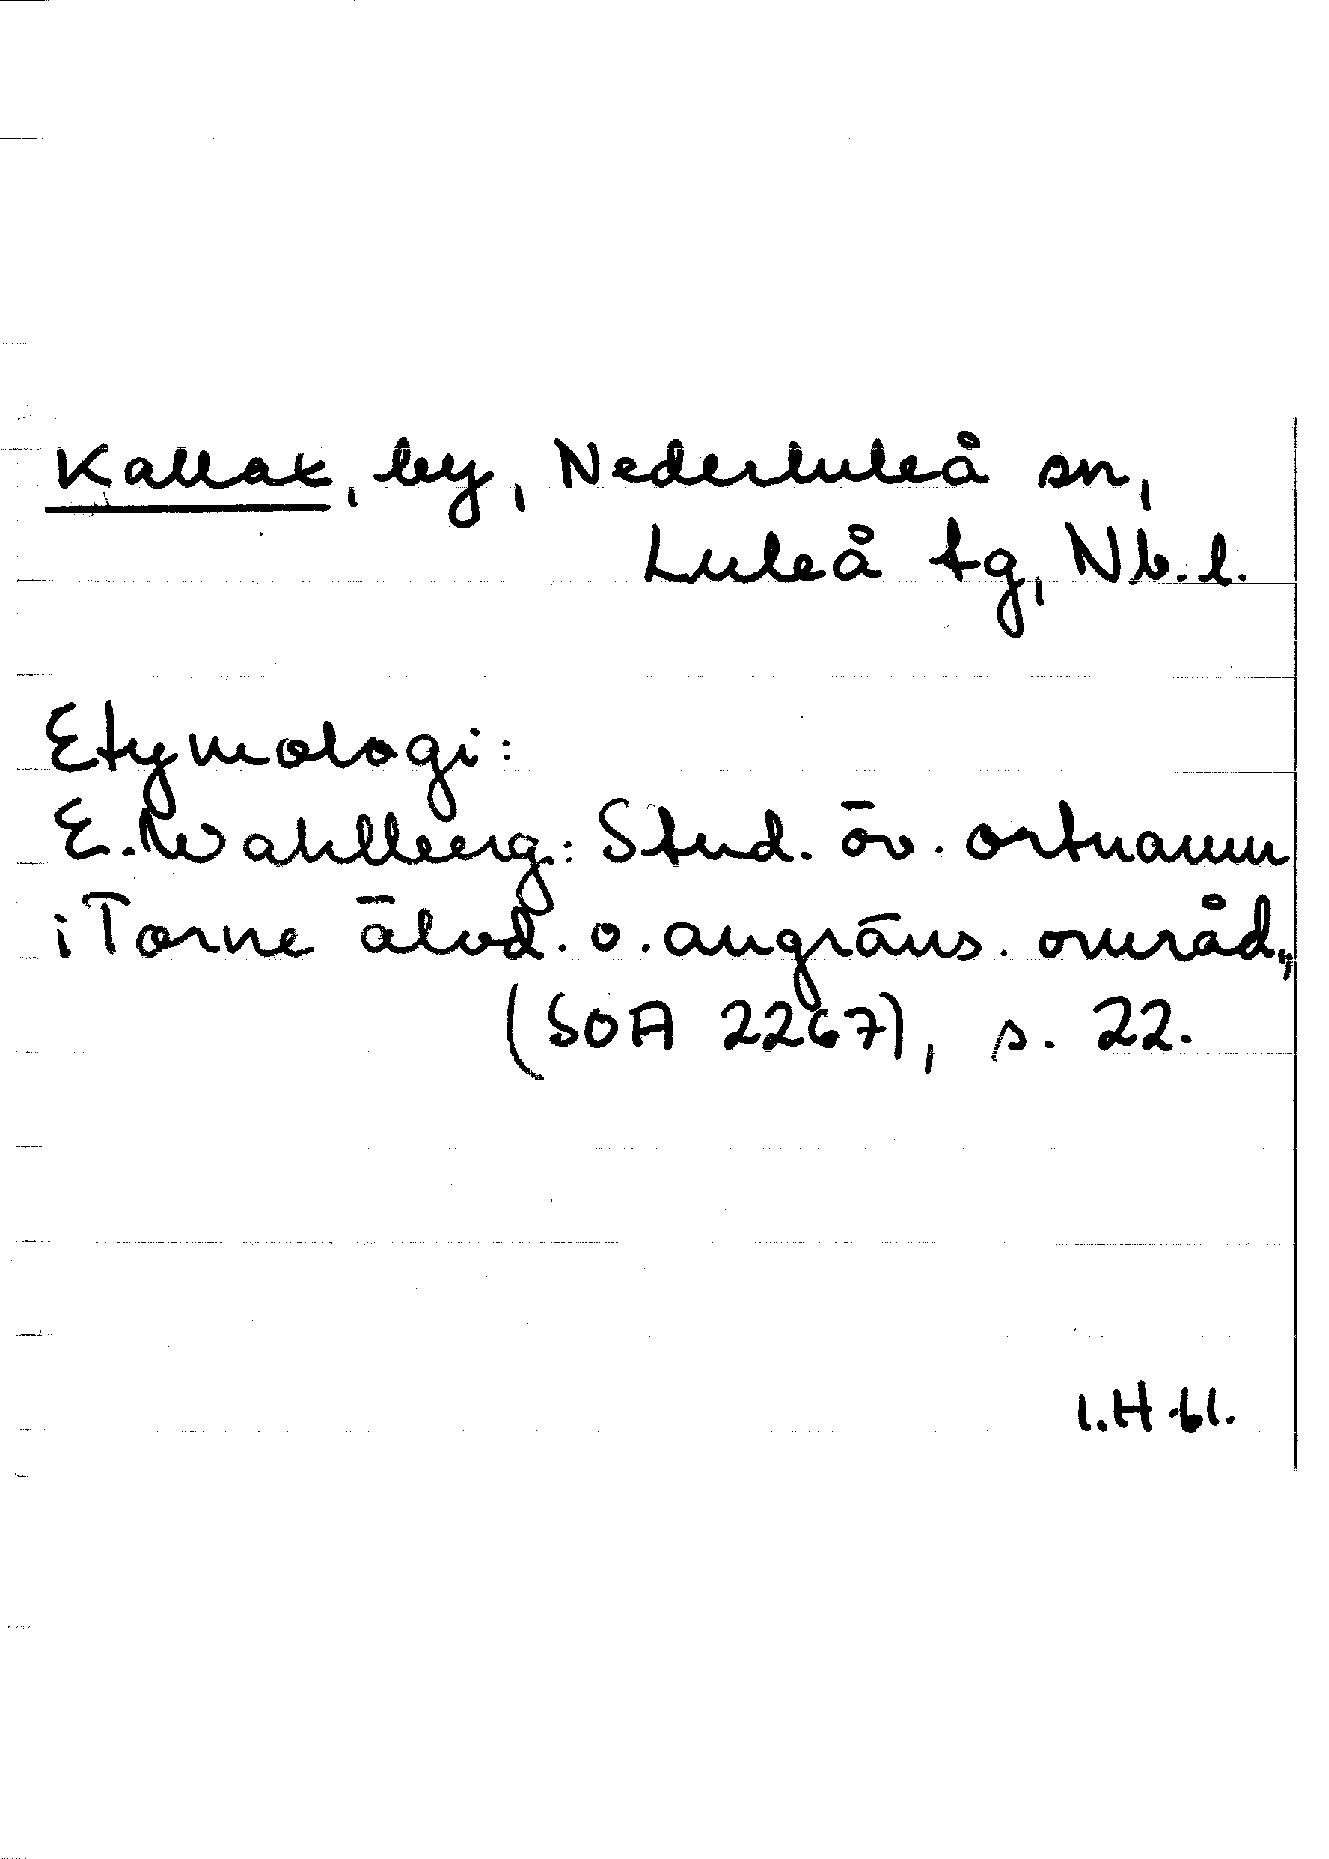 Kallax, by, Nederluleå sn,
Luleå tg, Nb. l.
Etymologi:
E. Wahlberg: Stud. öv. ortnamn
i Torne älvd. o. angräns. områd.,
(SOA 2267), s. 22.
I.H-61.